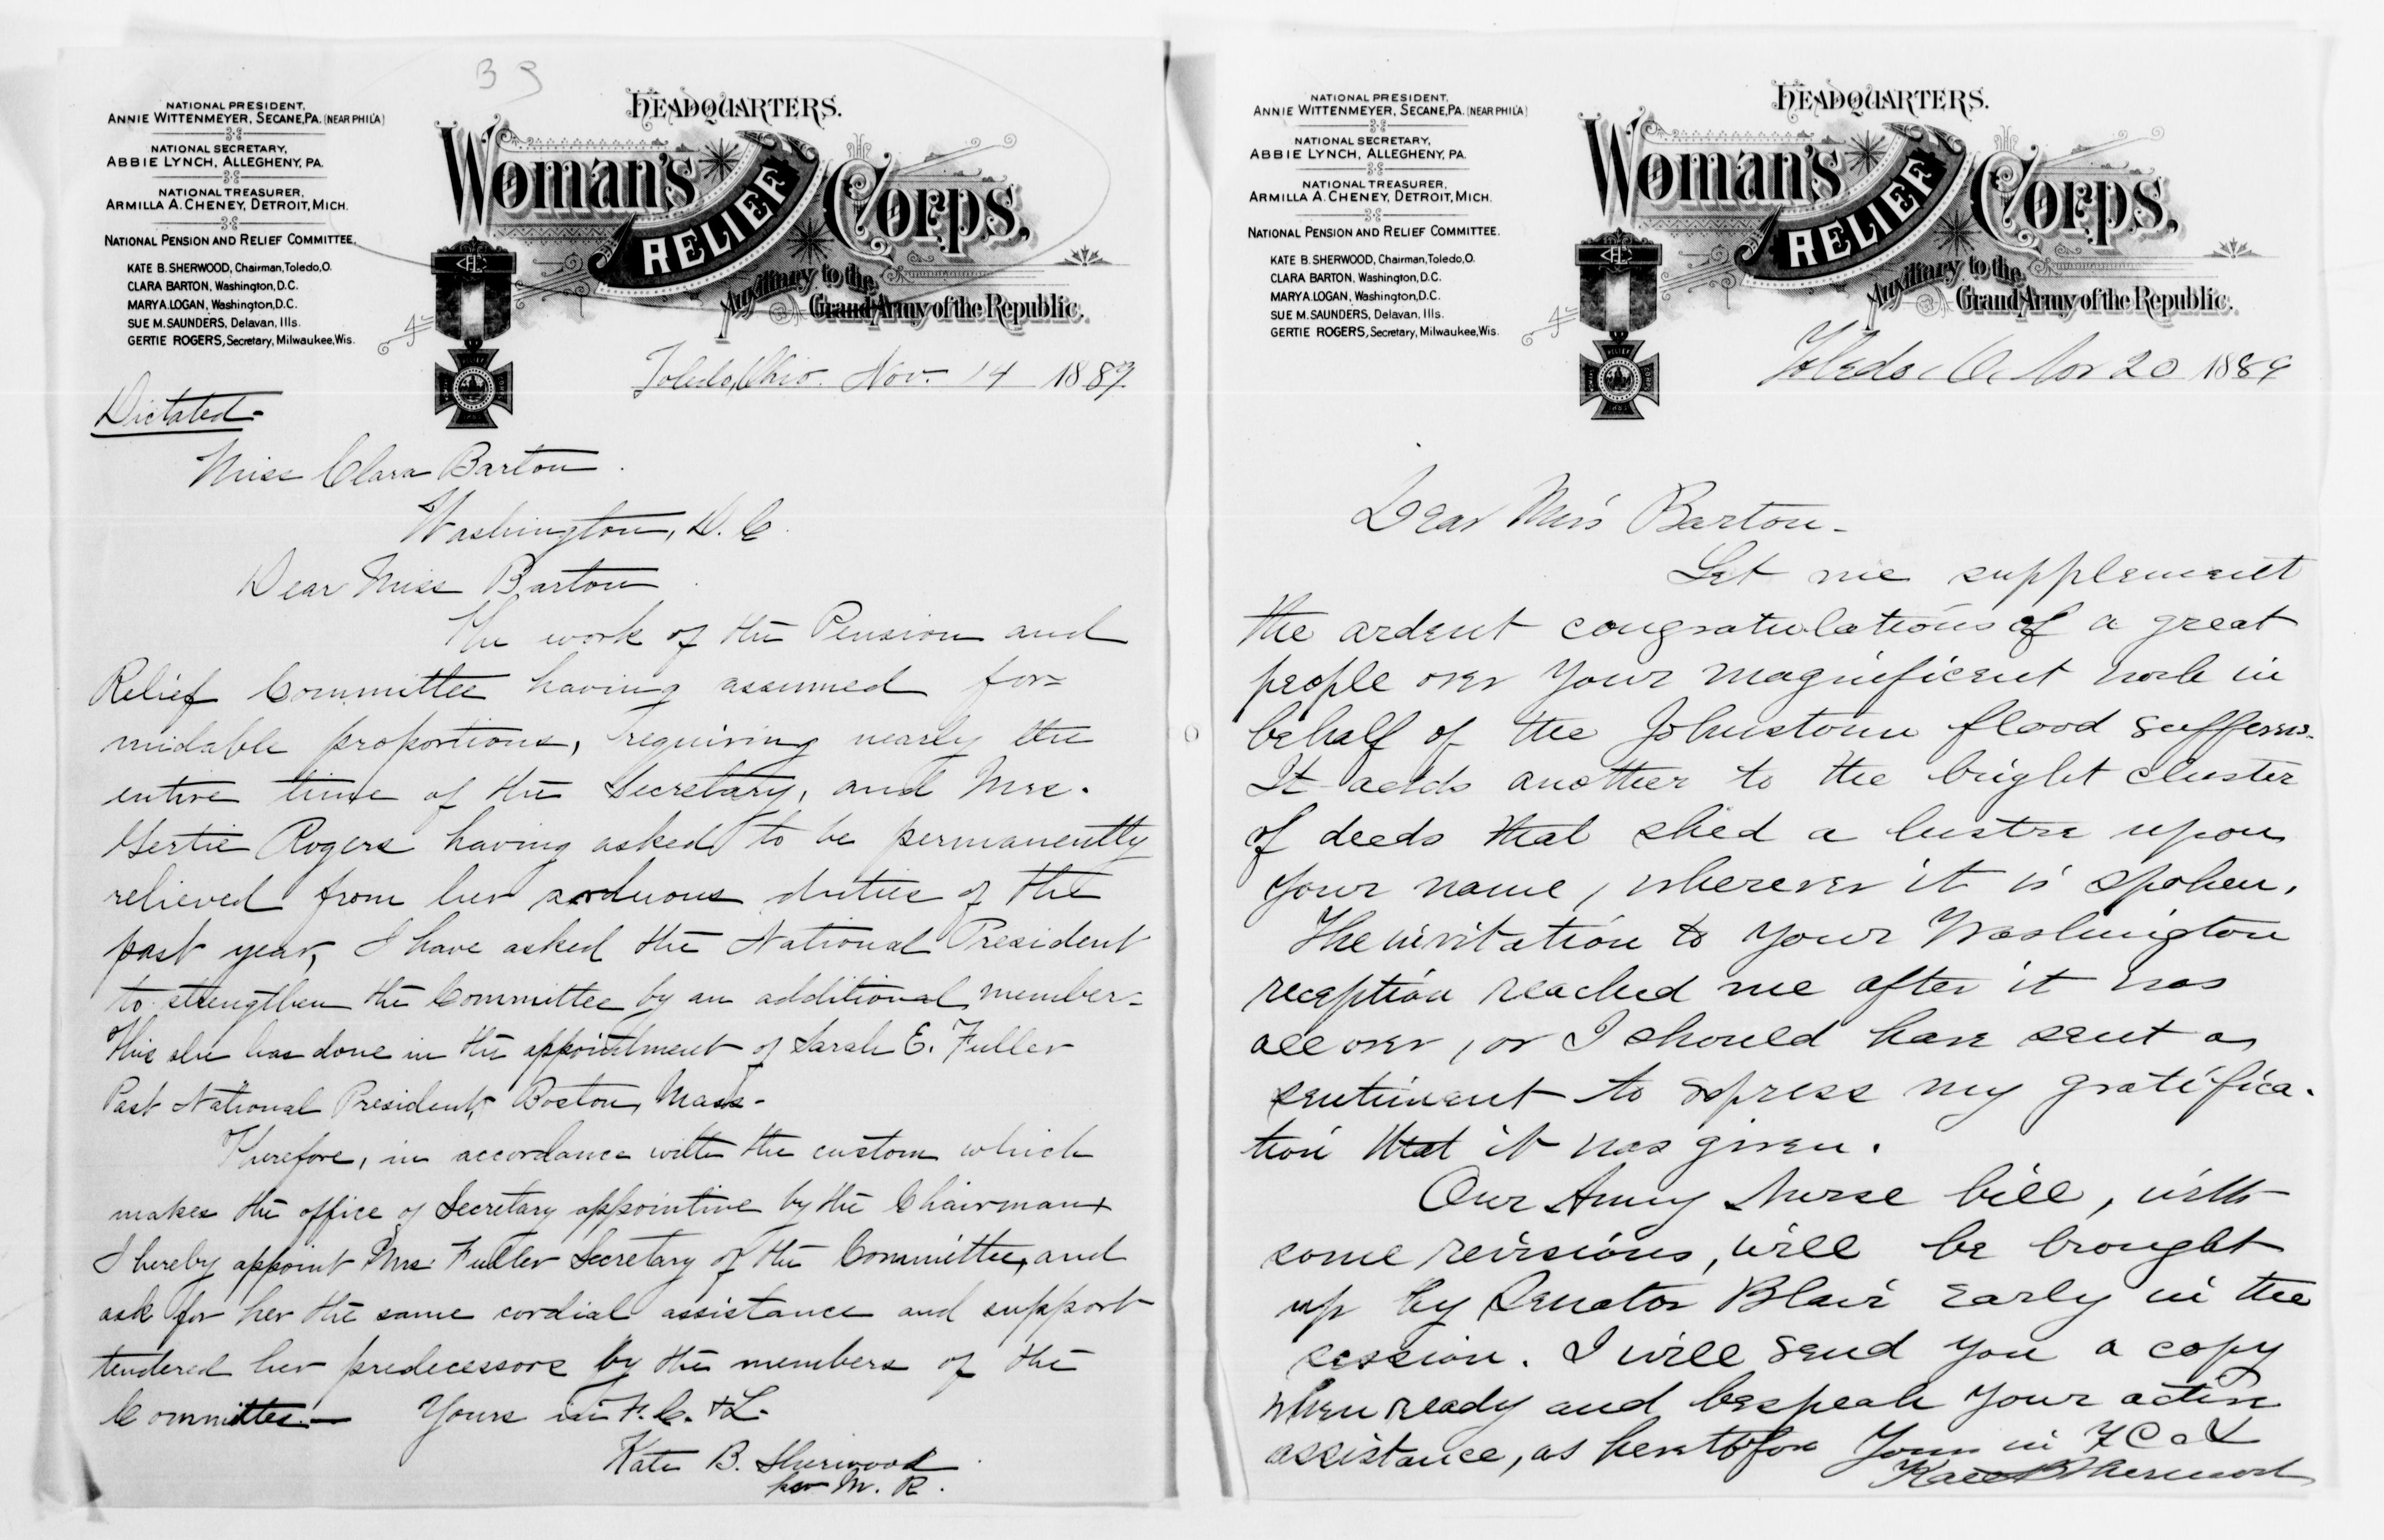 33
NATIONAL PRESIDENT,
ANNIE WITTENMEYER, SECANE, PA. (NEAR PHIL'A)
NATIONAL SECRETARY,
ABBIE LYNCH, ALLEGHENY, PA.
NATIONAL TREASURER,
ARMILLA A. CHENEY, DETROIT, MICH.
NATIONAL PENSION AND RELIEF COMMITTEE.
KATE B. SHERWOOD, Chairman, Toledo, O.
CLARA BARTON, Washington, D.C.
MARY A. LOGAN, Washington, D.C.
SUE M. SAUNDERS, Delavan, Ills.
GERTIE ROGERS, Secretary, Milwaukee, Wis.
HEADQUARTERS.
Woman's RELIEF Corps,
Auxiliary to the
Grand Army of the Republic.
Toledo, Ohio. Nov. 14 1889.
Dictated-
Miss Clara Barton.
Washington, D. C.
Dear Miss Barton.
The work of the Pension and
Relief Committee having assumed for-
midable proportions, requiring nearly the
entire time of the Secretary, and Mrs.
Gertie Rogers having asked to be permanently
relieved from her arduous duties of the
past year, I have asked the National President
to strengthen the Committee by an additional member-
This she has done in the appointment of Sarah E. Fuller
Past National President, Boston, Mass-
Therefore, in accordance with the custom which
makes the office of Secretary appointive by the Chairman,
I hereby appoint Mrs. Fuller Secretary of the Committee, and
ask for her the same cordial assistance and support
tendered her predecessors by the members of the
Committee.— Yours in F. C. & L.
Kate B. Sherwood.
per M. R.
NATIONAL PRESIDENT,
ANNIE WITTENMEYER, SECANE, PA. (NEAR PHIL'A)
NATIONAL SECRETARY,
ABBIE LYNCH, ALLEGHENY, PA.
NATIONAL TREASURER,
ARMILLA A. CHENEY, DETROIT, MICH.
NATIONAL PENSION AND RELIEF COMMITTEE.
KATE B. SHERWOOD, Chairman, Toledo, O.
CLARA BARTON, Washington, D.C.
MARY A. LOGAN, Washington, D.C.
SUE M. SAUNDERS, Delavan, Ills.
GERTIE ROGERS, Secretary, Milwaukee, Wis.
HEADQUARTERS.
Woman's RELIEF Corps,
Auxiliary to the
Grand Army of the Republic.
Toledo, O, Nov 20 1889
Dear Miss Barton-
Let me supplement
the ardent congratulations of a great
people over your magnificent work in
behalf of the Johnstown flood sufferers.
It adds another to the bright cluster
of deeds that shed a lustre upon
your name, wherever it is spoken.
The invitation to your Washington
reception reached me after it was
all over, or I should have sent a
sentiment to express my gratifica-
tion that it was given.
Our Army Nurse bill, with
some revisions, will be brought
up by Senator Blair early in the
session. I will send you a copy
when ready and bespeak your active
assistance, as heretofore Yours in F C & L
Kate B Sherwood